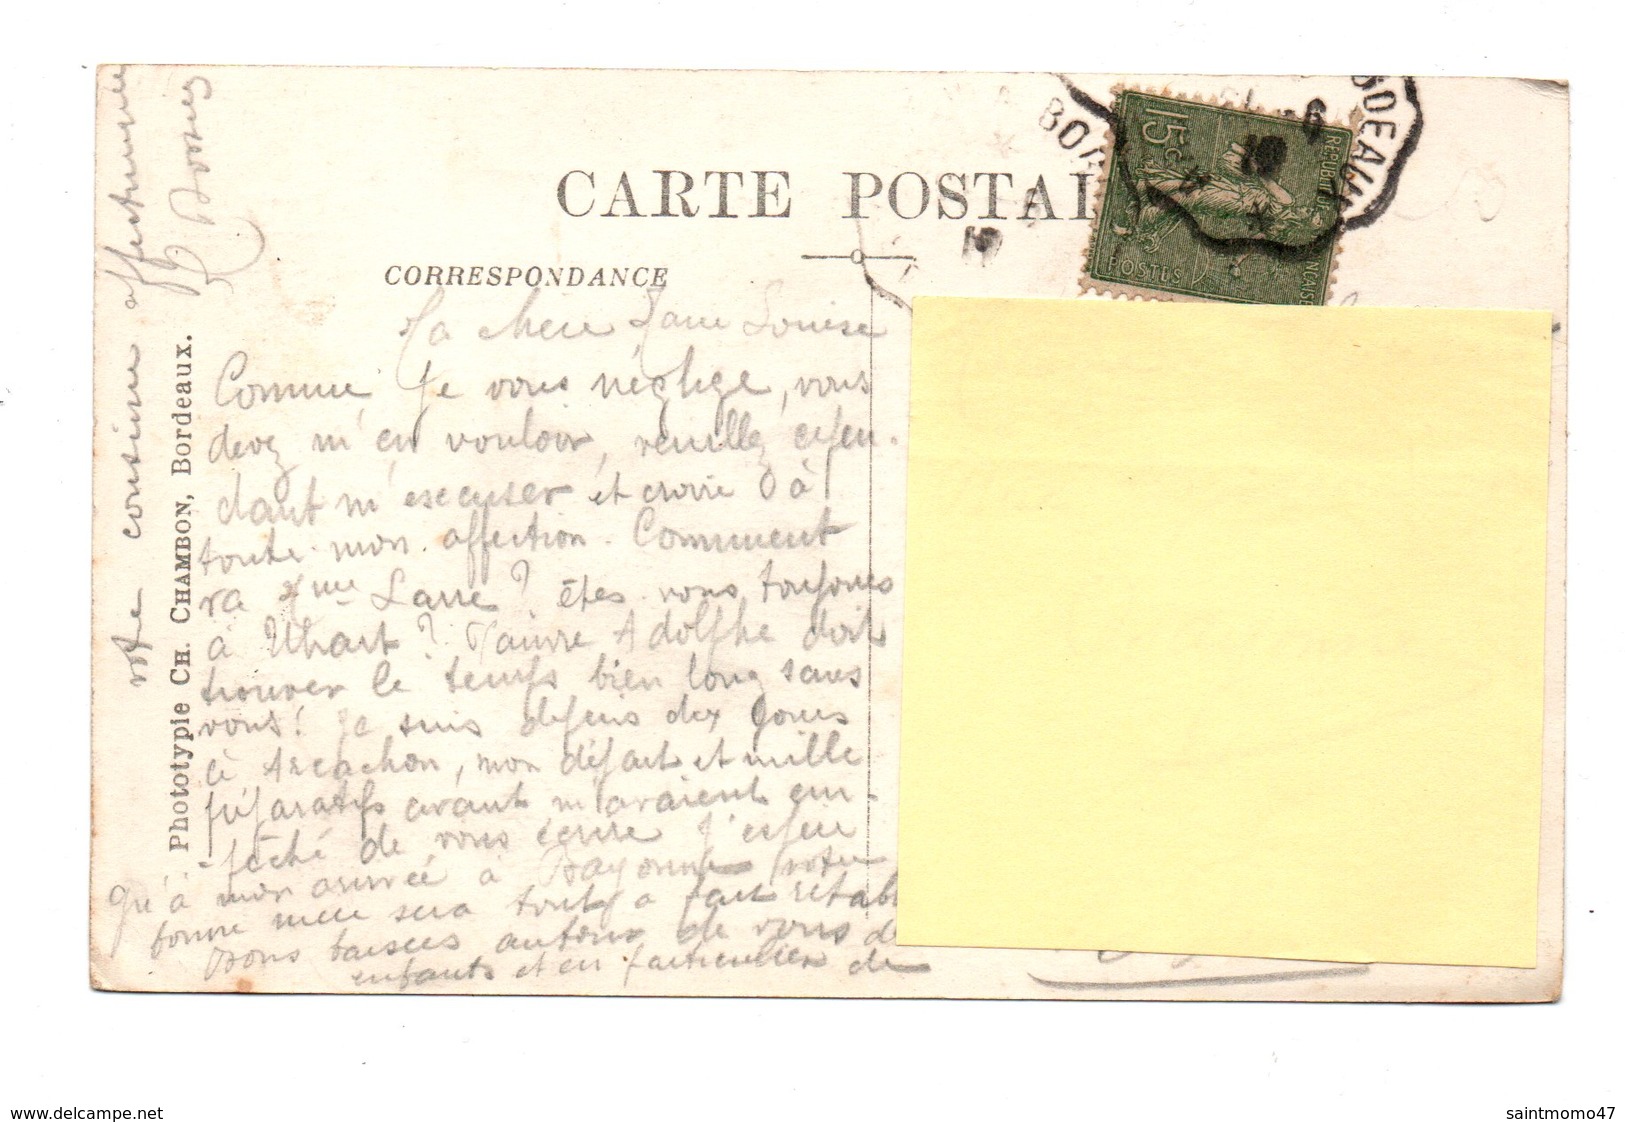 CARTE POSTAL
CORRESPONDANCE
Ma chère Jane Louise
Comme je vous néglige, vous
devez m'en vouloir, veuillez cepen-
dant m'excuser et croire à
toute mon affection. Comment
va Mme Larre ? êtes vous toujours
à Uhart ? Pauvre Adolphe doit
trouver le temps bien long sans
vous ! Je suis depuis dix jours
à Arcachon, mon départ et mille
préparatifs avant m'avaient em-
-pêché de vous écrire J'espère
qu'à mon arrivée à Bayonne votre
bonne mère sera tout à fait rétabl
Bons baisers autour de vous d
enfants et en particulier de
votre cousine affectionnée
Phototypie CH. CHAMBON, Bordeaux.
BOR
RDEAUX
15c
POSTES
REPUBLIQUE FRANÇAISE
www.delcampe.net
saintmomo47